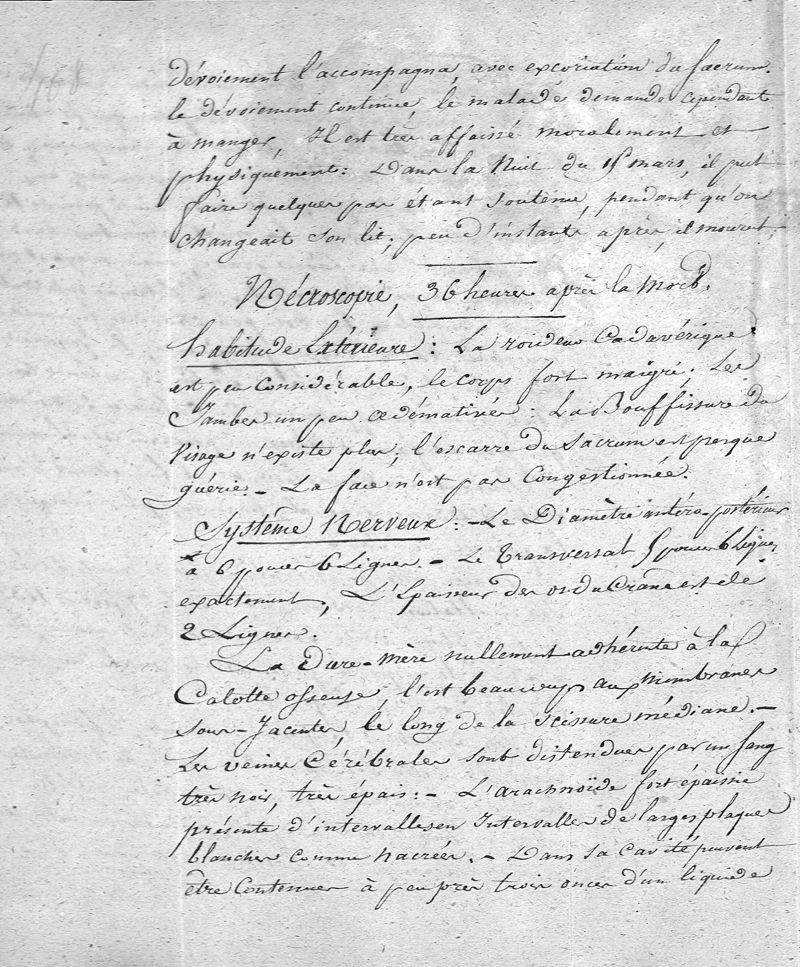 dévoiement l'accompagna, avec excoriation du sacrum.
le dévoiement continue, le malade demande cependant
à manger, Il est très affaissé moralement et
physiquement : Dans la Nuit du 15 mars, il put
faire quelques pas étant soutenu, pendant qu'on
changeait son lit, peu d'instants après, il mourut,
Nécroscopie, 36 heures après la mort.
habitude Extérieure : La roideur Cadavérique
est peu Considérable, le corps fort maigre ; Les
Jambes un peu œdématiées : La Bouffissure du
Visage n'existe plus ; l'escarre du Sacrum est presque
guérie. - La face n'est pas Congestionnée.
Système Nerveux : - Le Diamètre intéro-postérieur
a 6 pouces 6 Lignes. - Le Transversal 5 pouces 6 Lignes
exactement, L'Epaisseur des os du Crâne est de
2 Lignes.
La Dure-mère nullement adhérente à la
Calotte osseuse, l'est beaucoup aux Membranes
sous-Jacentes, le long de la scissure médiane. -
Les veines Cérébrales sont distendues par un sang
très noir, très épais : - L'arachnoïde fort épaissie
présente d'intervalles en Intervalles de larges plaques
blanches comme nacrées. - Dans sa cavité peuvent
être Contenues à peu près trois onces d'un liquide